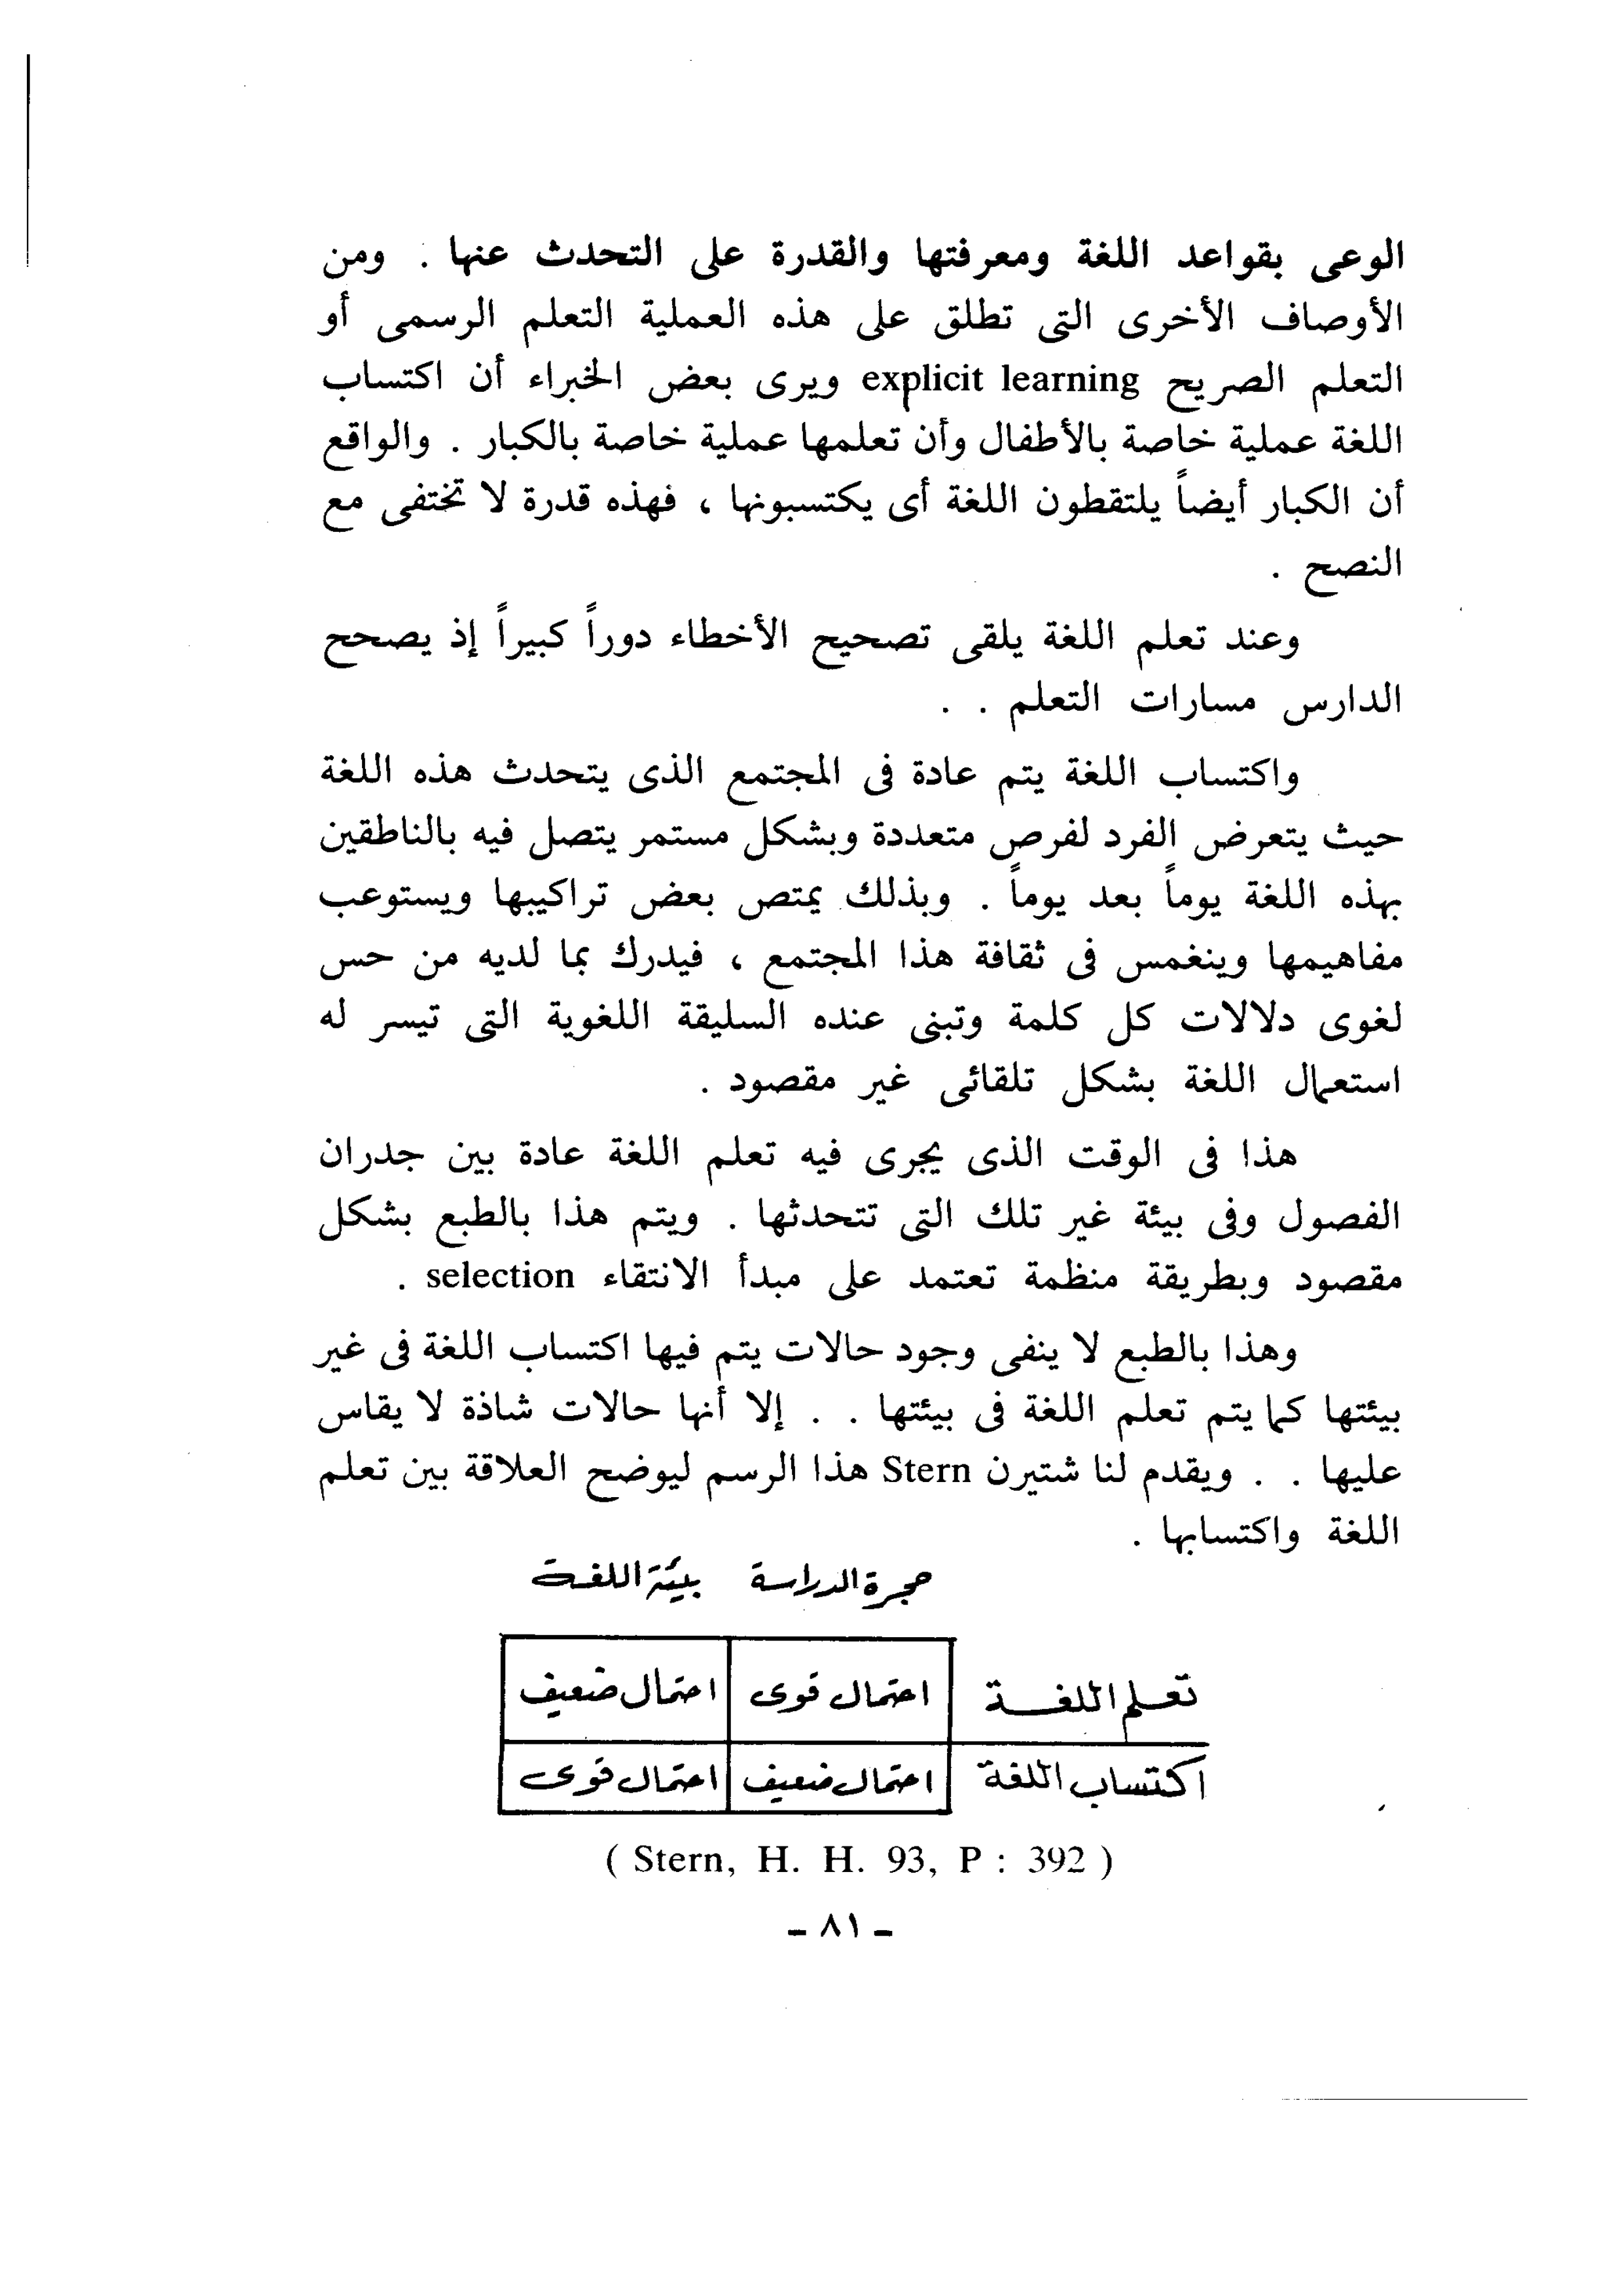 الوعى بقواعد اللغة ومعرفتها والقدرة على التحدث عنها . ومن
الأوصاف الأخرى التى تطلق على هذه العملية التعلم الرسمى أو
التعلم الصريح explicit learning ويرى بعض الخبراء أن اكتساب
اللغة عملية خاصة بالأطفال وأن تعلمها عملية خاصة بالكبار . والواقع
أن الكبار أيضاً يلتقطون اللغة أى يكتسبونها ، فهذه قدرة لا تختفى مع
النصح .
وعند تعلم اللغة يلقى تصحيح الأخطاء دوراً كبيراً إذ يصحح
الدارس مسارات التعلم . .
واكتساب اللغة يتم عادة فى المجتمع الذى يتحدث هذه اللغة
حيث يتعرض الفرد لفرص متعددة وبشكل مستمر يتصل فيه بالناطقين
بهذه اللغة يوماً بعد يوماً . وبذلك يمتص بعض تراكيبها ويستوعب
مفاهيمها وينغمس فى ثقافة هذا المجتمع ، فيدرك بما لديه من حس
لغوى دلالات كل كلمة وتبنى عنده السليقة اللغوية التى تيسر له
استعمال اللغة بشكل تلقائى غير مقصود .
هذا فى الوقت الذى يجرى فيه تعلم اللغة عادة بين جدران
الفصول وفى بيئة غير تلك التى تتحدثها . ويتم هذا بالطبع بشكل
مقصود وبطريقة منظمة تعتمد على مبدأ الانتقاء selection .
وهذا بالطبع لا ينفى وجود حالات يتم فيها اكتساب اللغة فى غير
بيئتها كما يتم تعلم اللغة فى بيئتها . . إلا أنها حالات شاذة لا يقاس
عليها . . ويقدم لنا شتيرن Stern هذا الرسم ليوضح العلاقة بين تعلم
اللغة واكتسابها .
حجرة الدراسة بيئة اللغة
تعلم اللغة احتمال قوى احتمال ضعيف
اكتساب اللغة احتمال ضعيف احتمال قوى
( Stern, H. H. 93, P : 392 )
- ٨١ -